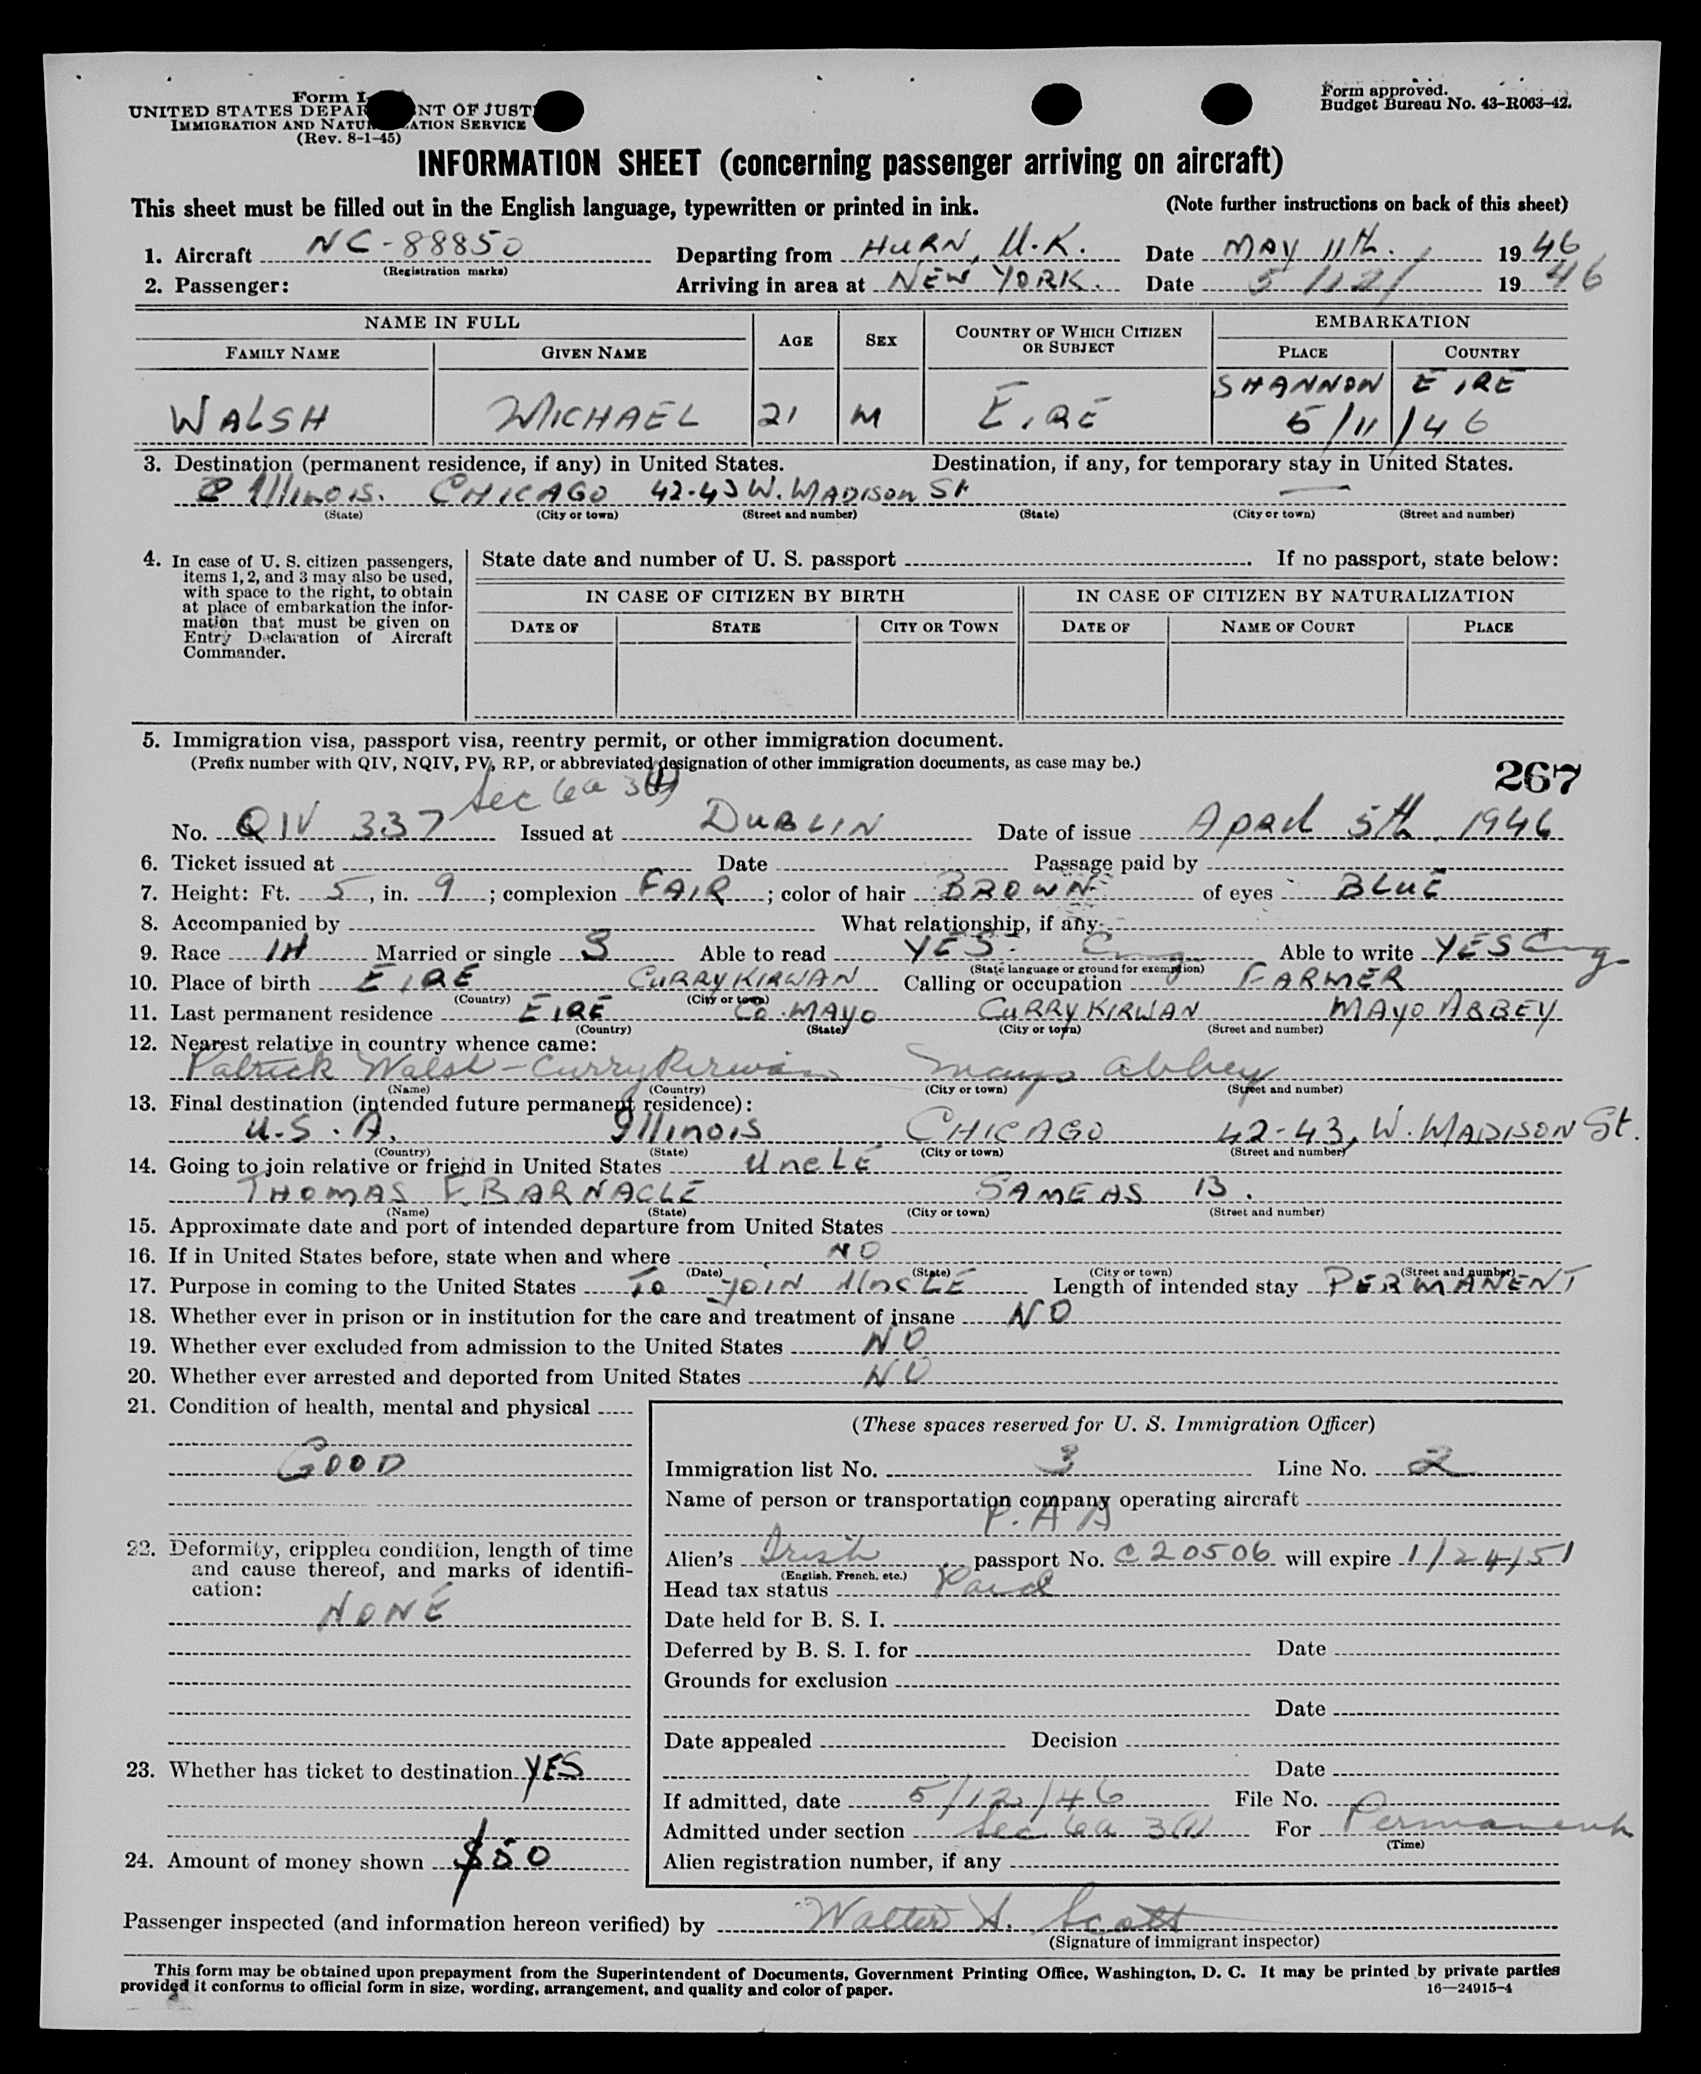 Form I-
UNITED STATES DEPAR NT OF JUST
IMMIGRATION AND NATU ATION SERVICE
(Rev. 8-1-45)
Form approved.
Budget Bureau No. 43-R063-42.
INFORMATION SHEET (concerning passenger arriving on aircraft)
This sheet must be filled out in the English language, typewritten or printed in ink. (Note further instructions on back of this sheet)
1. Aircraft NC-88850 Departing from HURN, U.K. Date MAY 11th. 1946
(Registration marks)
2. Passenger: Arriving in area at NEW YORK. Date 5/12/ 1946
NAME IN FULL AGE SEX COUNTRY OF WHICH CITIZEN OR SUBJECT EMBARKATION
FAMILY NAME GIVEN NAME PLACE COUNTRY
SHANNON EIRE
WALSH MICHAEL 21 M EIRE 5/11/46
3. Destination (permanent residence, if any) in United States. Destination, if any, for temporary stay in United States.
Illinois. CHICAGO 42-43 W. MADISON St —
(State) (City or town) (Street and number) (State) (City or town) (Street and number)
4. In case of U. S. citizen passengers, items 1, 2, and 3 may also be used, with space to the right, to obtain at place of embarkation the information that must be given on Entry Declaration of Aircraft Commander.
State date and number of U. S. passport . If no passport, state below:
IN CASE OF CITIZEN BY BIRTH IN CASE OF CITIZEN BY NATURALIZATION
DATE OF STATE CITY OR TOWN DATE OF NAME OF COURT PLACE
5. Immigration visa, passport visa, reentry permit, or other immigration document.
(Prefix number with QIV, NQIV, PV, RP, or abbreviated designation of other immigration documents, as case may be.)
267
Sec 6a 3(1)
No. QIV 337 Issued at DUBLIN Date of issue April 5th, 1946
6. Ticket issued at Date Passage paid by
7. Height: Ft. 5, in. 9; complexion FAIR; color of hair BROWN of eyes BLUE
8. Accompanied by What relationship, if any
9. Race IH Married or single S Able to read YES. Eng Able to write YES Eng
(State language or ground for exemption)
10. Place of birth EIRE CURRYKIRWAN Calling or occupation FARMER
(Country) (City or town)
11. Last permanent residence EIRE Co. MAYO CURRYKIRWAN MAYO ABBEY
(Country) (State) (City or town) (Street and number)
12. Nearest relative in country whence came:
Patrick Walsh - CurryKirwan Mayo Abbey
(Name) (Country) (City or town) (Street and number)
13. Final destination (intended future permanent residence):
U.S.A. Illinois CHICAGO 42-43, W. MADISON St.
(Country) (State) (City or town) (Street and number)
14. Going to join relative or friend in United States UncLE
THOMAS F. BARNACLE SAME AS 13.
(Name) (State) (City or town) (Street and number)
15. Approximate date and port of intended departure from United States
16. If in United States before, state when and where NO
(Date) (State) (City or town) (Street and number)
17. Purpose in coming to the United States To JOIN UncLE Length of intended stay PERMANENT
18. Whether ever in prison or in institution for the care and treatment of insane NO
19. Whether ever excluded from admission to the United States NO
20. Whether ever arrested and deported from United States NO
21. Condition of health, mental and physical
GOOD
22. Deformity, crippled condition, length of time and cause thereof, and marks of identification:
NONE
23. Whether has ticket to destination YES
24. Amount of money shown $50
(These spaces reserved for U. S. Immigration Officer)
Immigration list No. 3 Line No. 2
Name of person or transportation company operating aircraft
P. A A
Alien's Irish passport No. C20506 will expire 1/24/51
(English, French, etc.)
Head tax status Paid
Date held for B. S. I.
Deferred by B. S. I. for Date
Grounds for exclusion
Date
Date appealed Decision
Date
If admitted, date 5/12/46 File No.
Admitted under section Sec 6a 3(1) For Permanent
(Time)
Alien registration number, if any
Passenger inspected (and information hereon verified) by Walter A. Scott
(Signature of immigrant inspector)
This form may be obtained upon prepayment from the Superintendent of Documents, Government Printing Office, Washington, D. C. It may be printed by private parties
provided it conforms to official form in size, wording, arrangement, and quality and color of paper.
16—24915-4